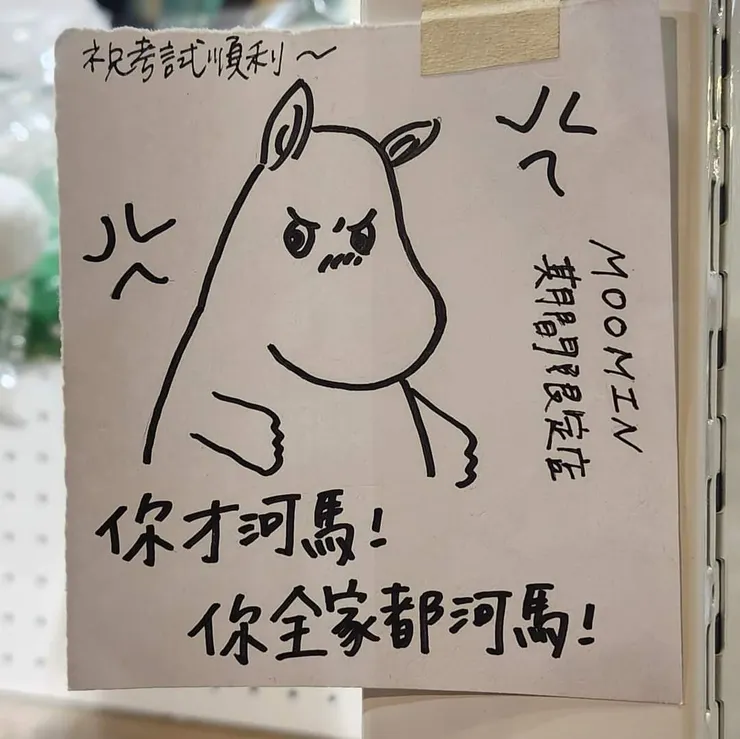 祝考試順利～
MOOMIN
期間限定店
你才河馬!
你全家都河馬!